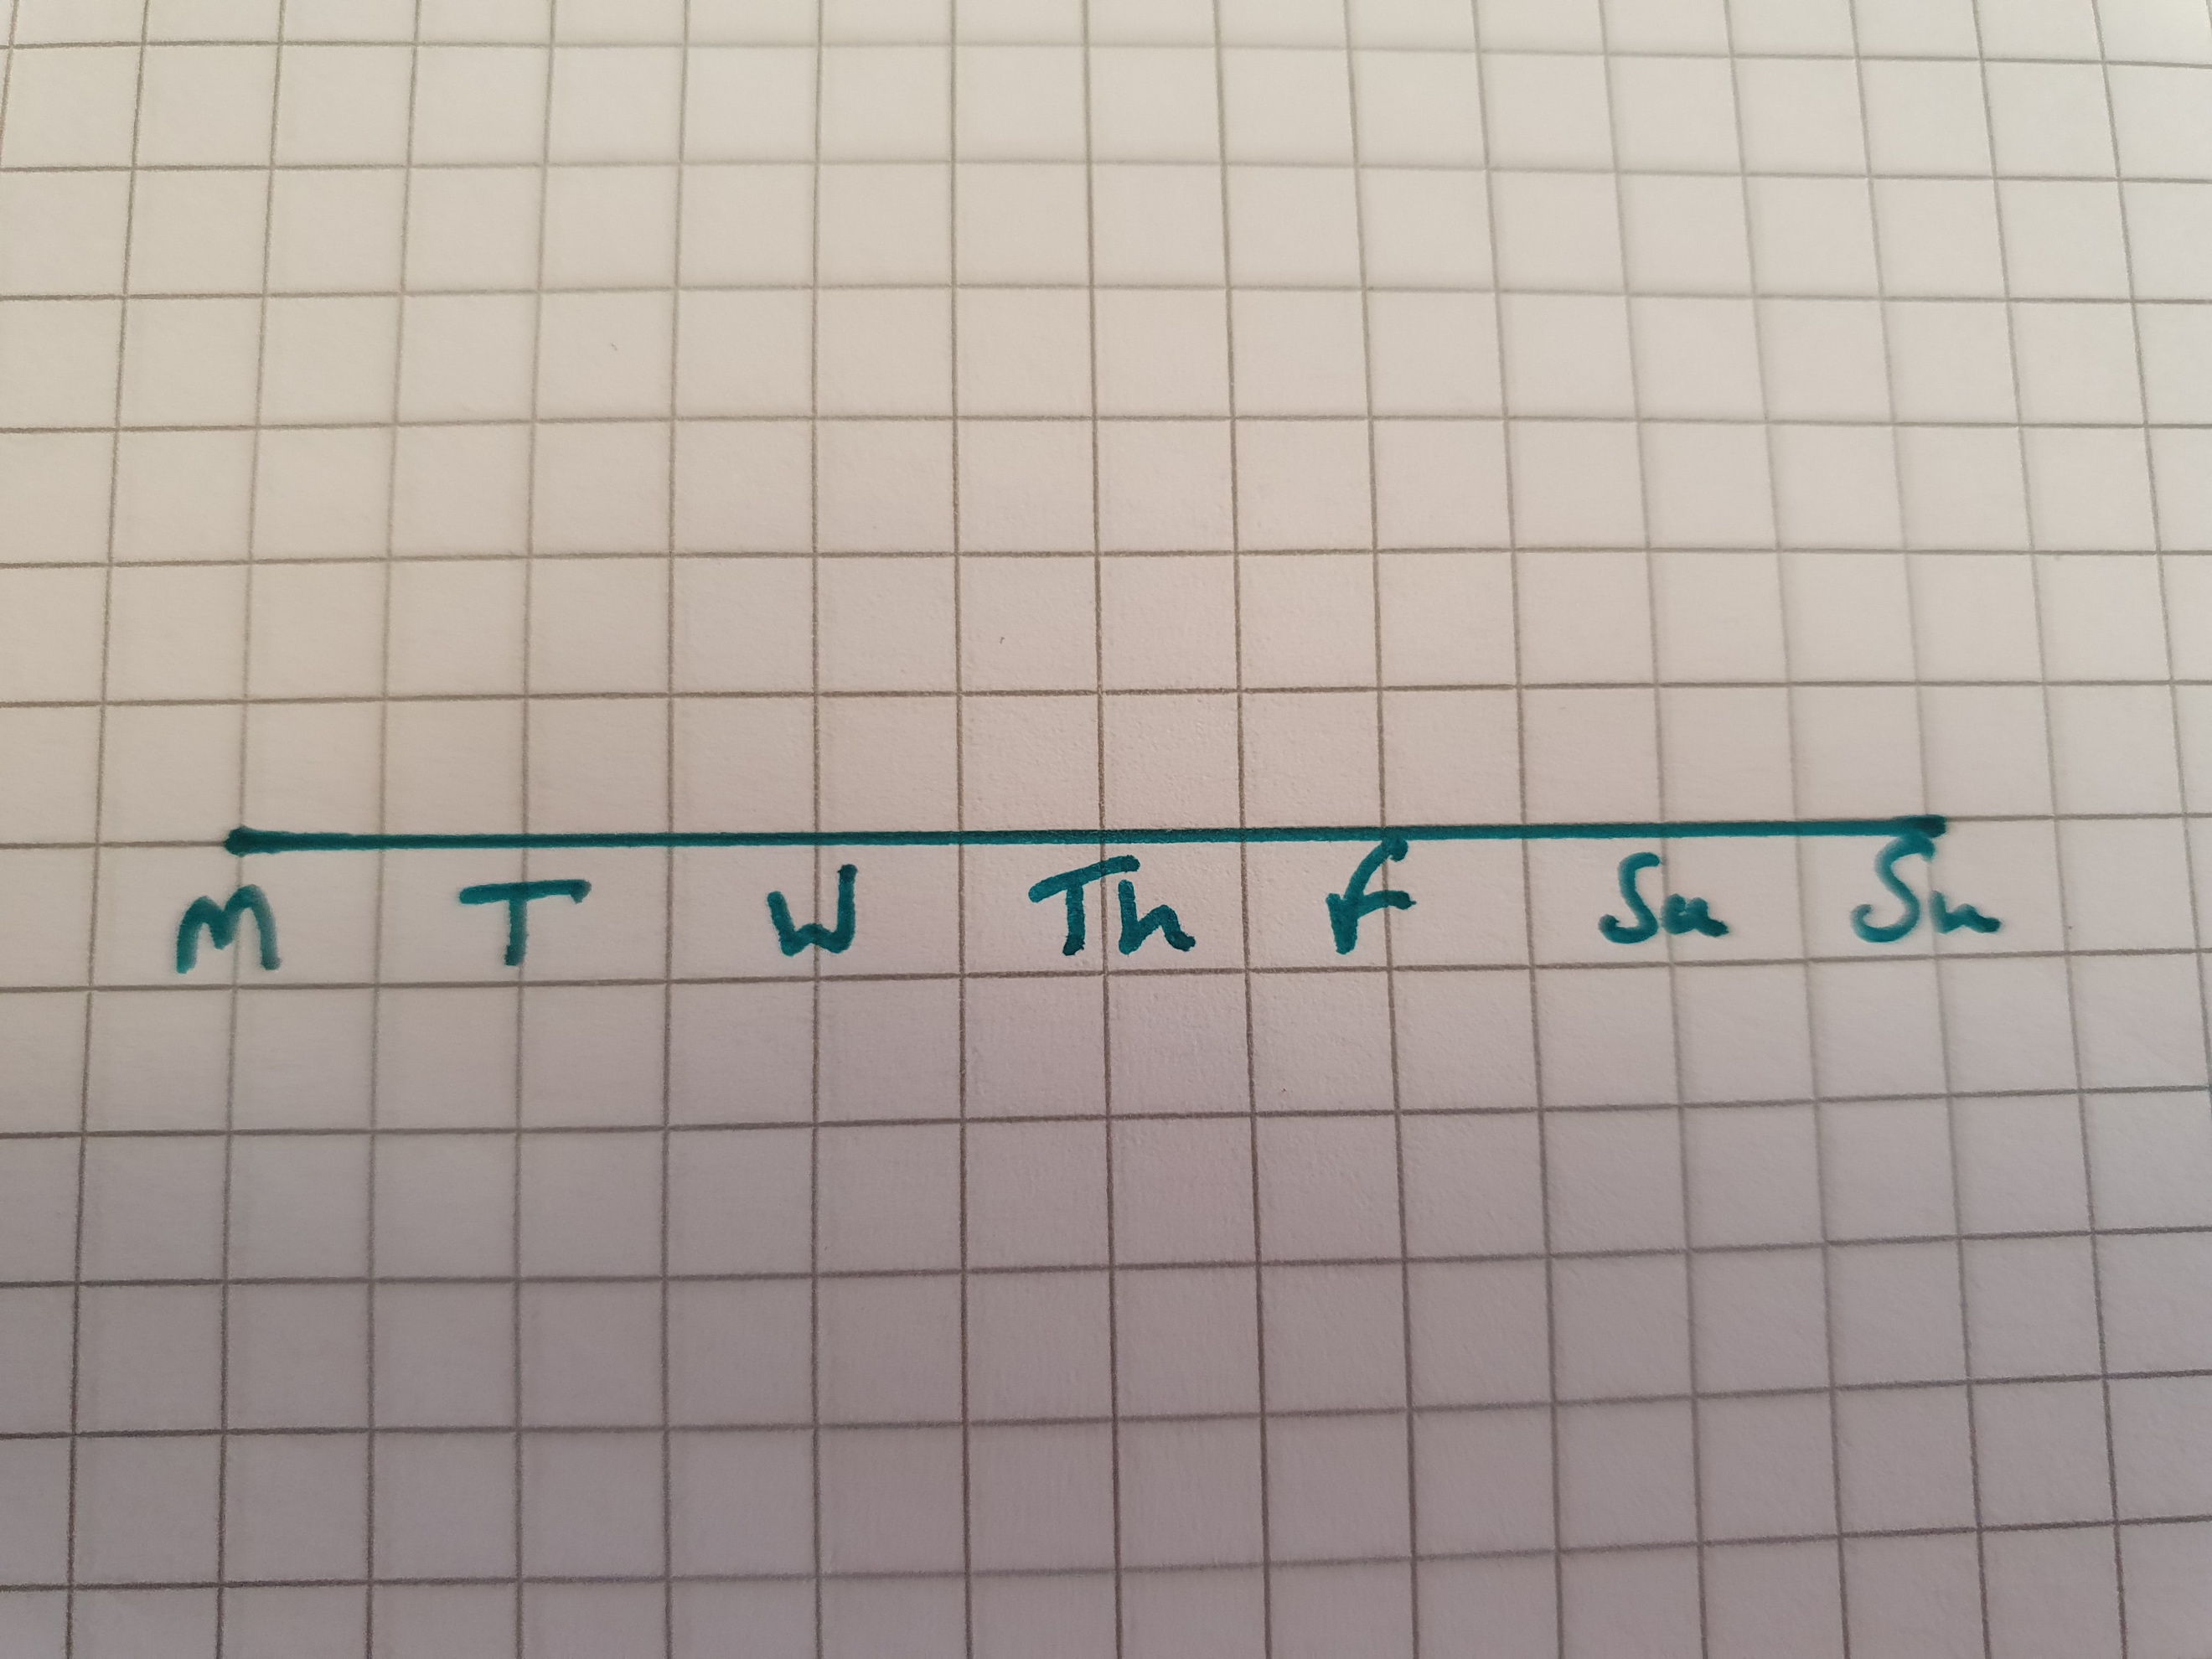 M T W Th F Sa Su